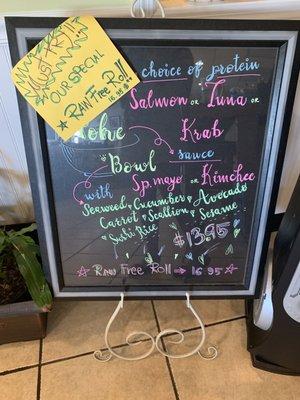 Must Try!!
our special
Raw Free Roll
16.95
choice of protein
Salmon or Tuna or
Poke Krab
Bowl sauce
with Sp. mayo or Kimchee
Seaweed Cucumber Avocado
Carrot Scallion Sesame
Sushi Rice
$13.95
Raw Free Roll → 16.95